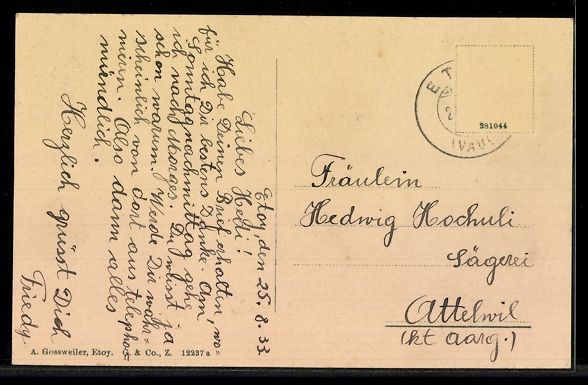 Etoy, den 25.8.33
Liebes Hedi!
Habe Deinen Brief erhalten, wo=
für ich Dir bestens Danke. Am
Sonntagnachmittag gehe
ich nach Morges. Du weisst ja
schon warum. Werde Dir wahr=
scheinlich von dort aus telepho=
nieren. Also dann alles
mündlich.
Herzlich grüsst Dich
Friedy
281044
(VAUD
Fräulein
Hedwig Hochuli
Sägerei
Attelwil
(kt Aarg.)
A. Gossweiler, Etoy. & Co., Z. 12237a